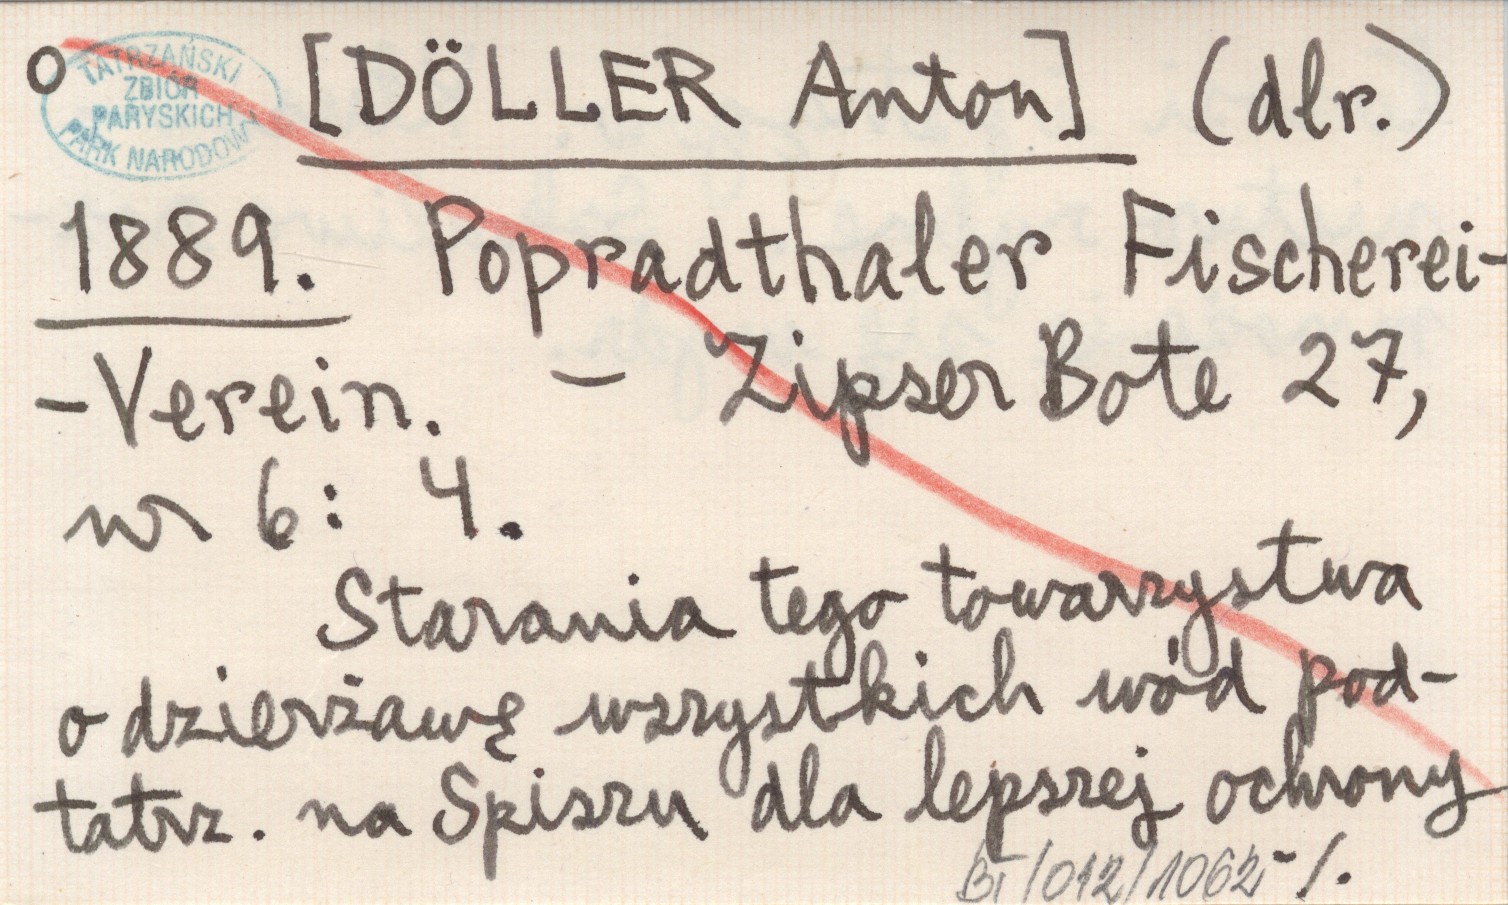 o [DÖLLER Anton] (dlr.)
TATRZAŃSKI
ZBIÓR
PARYSKICH
PARK NARODOWY
1889. Popradthaler Fischerei-
-Verein. – Zipser Bote 27,
nr 6: 4.
Starania tego towarzystwa
o dzierżawę wszystkich wód pod-
tatrz. na Spiszu dla lepszej ochrony
BT/012/1062 -/.